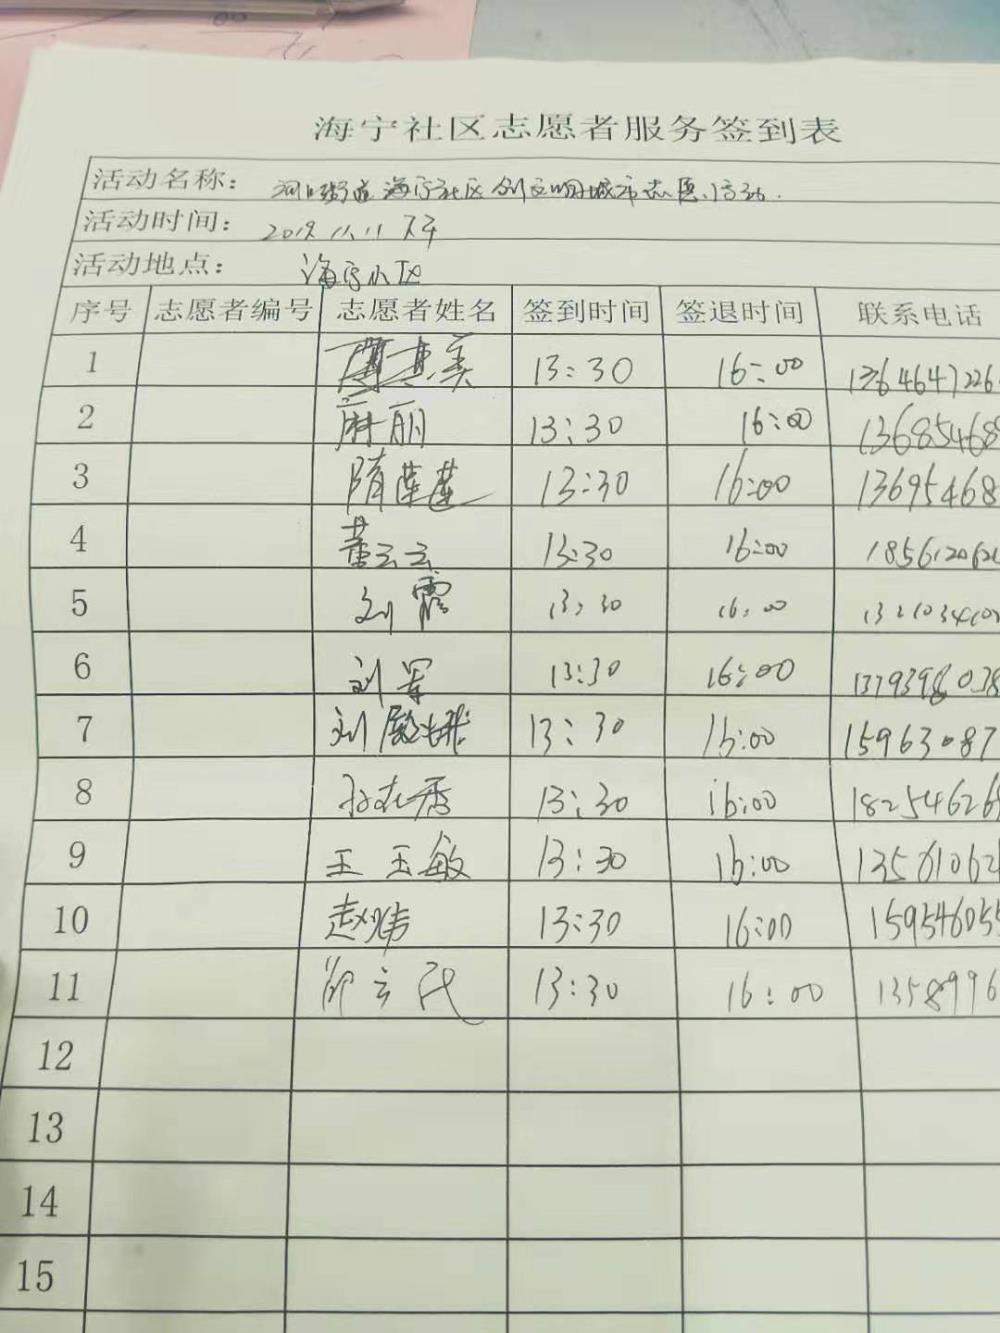 海宁社区志愿者服务签到表
活动名称: 河口街道海宁社区创文明城市志愿活动.
活动时间: 2019.11.11 下午
活动地点: 海宁小区
序号 志愿者编号 志愿者姓名 签到时间 签退时间 联系电话
1 13:30 16:00 1364647226
2 麻丽 13:30 16:00 13685468
3 隋莲莲 13:30 16:00 13695468
4 董云云 13:30 16:00 185612062
5 刘霞 13:30 16:00
6 刘军 13:30 16:00 1379398038
7 刘 13:30 16:00 15963087
8 孙志秀 13:30 16:00 18254626
9 王玉敏 13:30 16:00 13561062
10 赵炜 13:30 16:00 159546055
11 邵云民 13:30 16:00 1358996
12
13
14
15